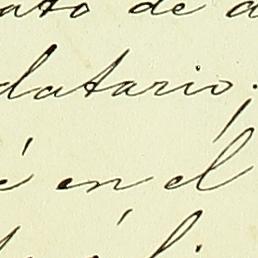 ato de a
datario.
é en él